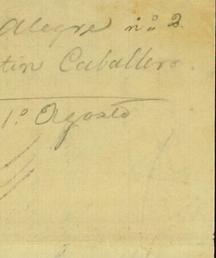 Alegre nº 2.
tin Caballero.
1.º Agosto